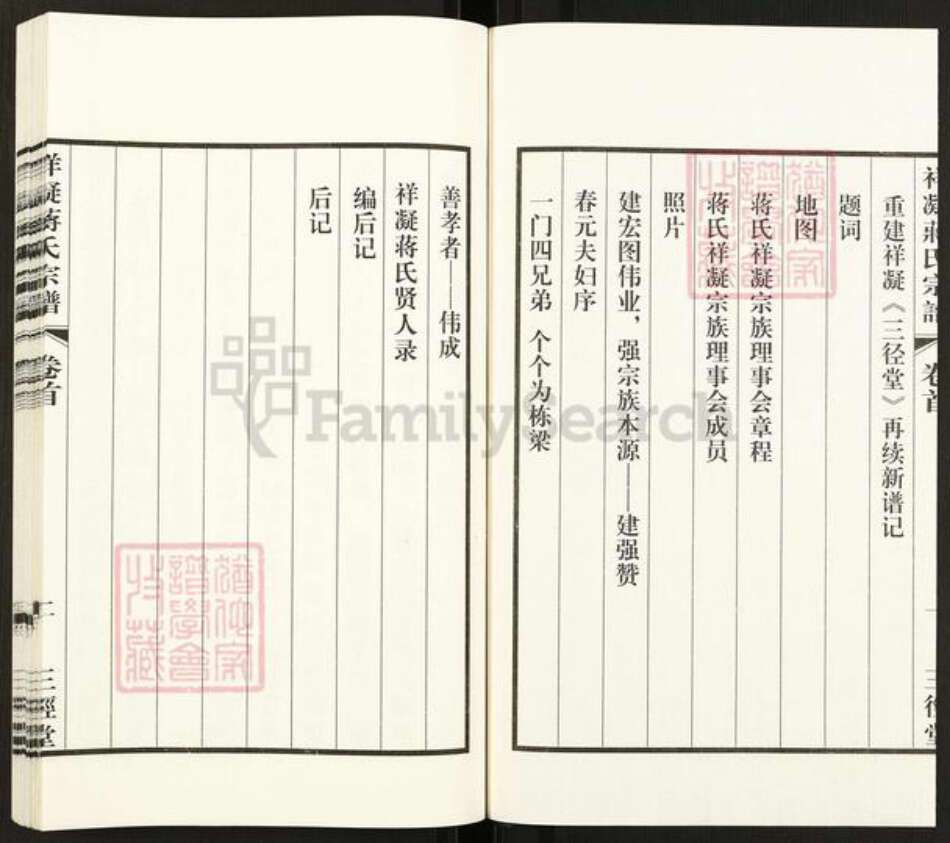 祥凝蒋氏宗谱
卷首
三径堂
重建祥凝《三径堂》再续新谱记
题词
地图
蒋氏祥凝宗族理事会章程
蒋氏祥凝宗族理事会成员
照片
建宏图伟业，强宗族本源——建强赞
春元夫妇序
一门四兄弟 个个为栋梁
善孝者——伟成
祥凝蒋氏贤人录
编后记
后记
祥凝蒋氏宗谱
卷首
二
三徑堂
猶他家
譜學會
收藏
猶他家
譜學會
收藏
FamilySearch